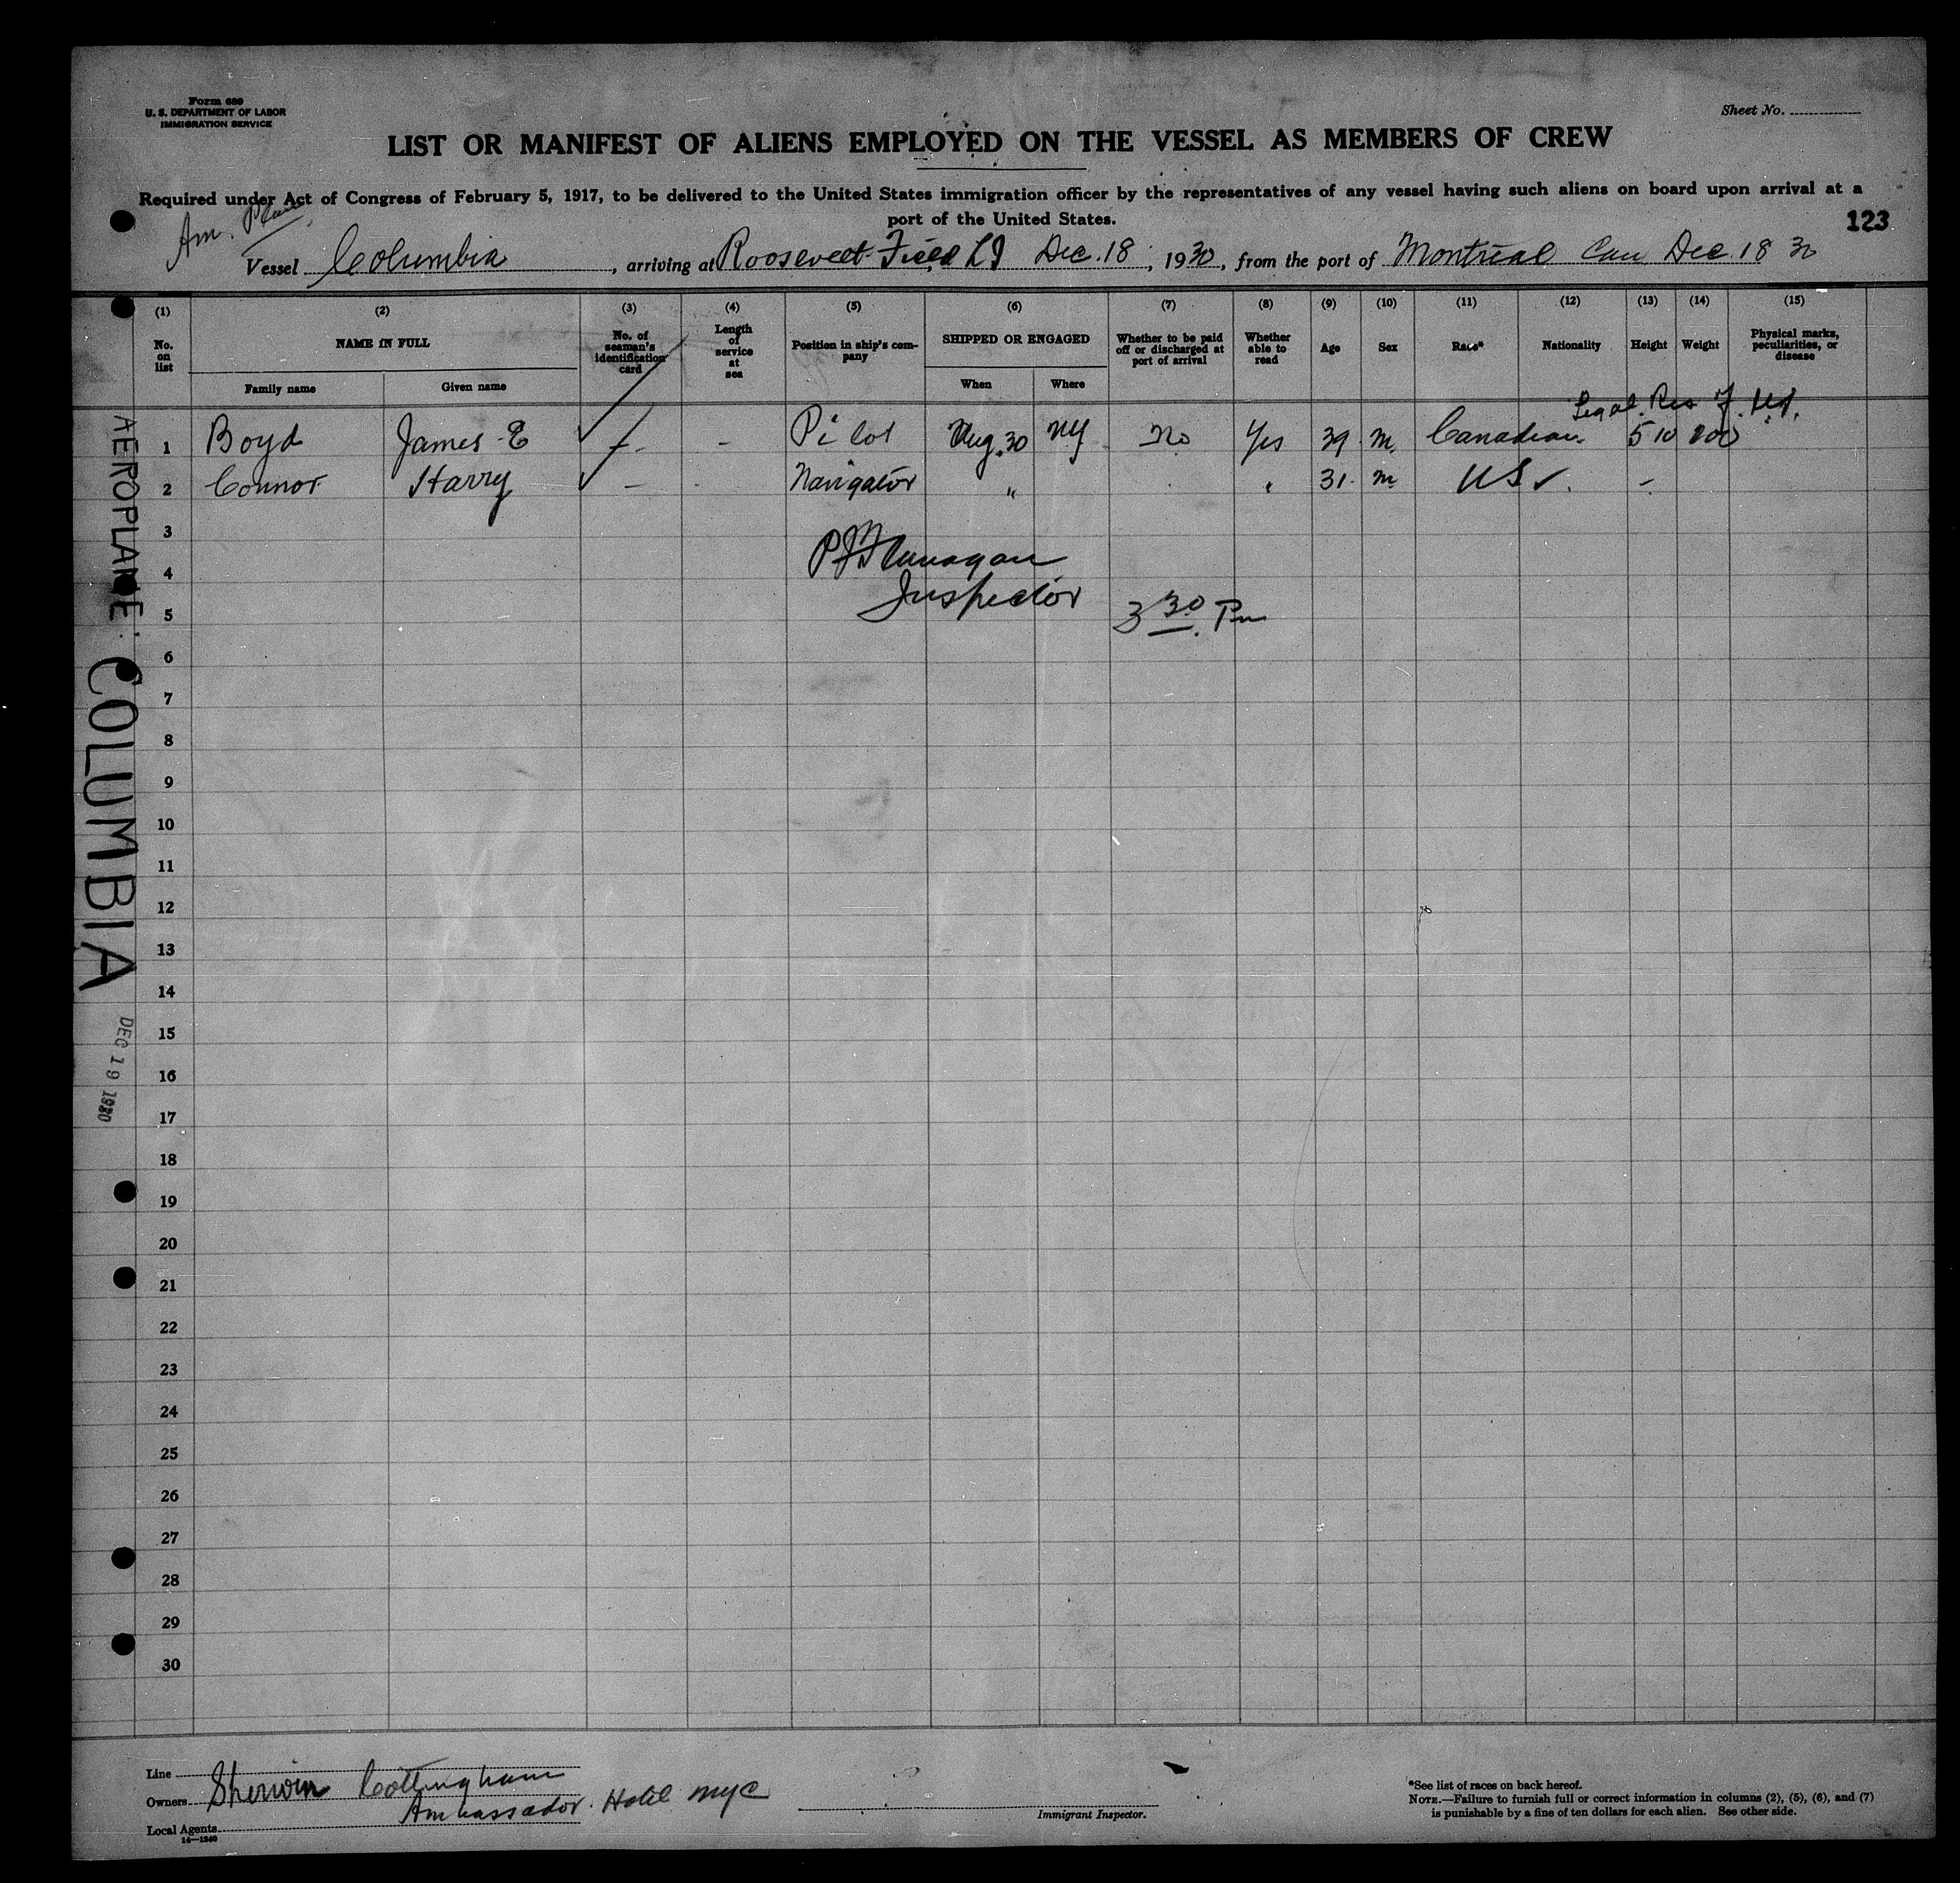 Form 689
U. S. DEPARTMENT OF LABOR
IMMIGRATION SERVICE
Sheet No.
LIST OR MANIFEST OF ALIENS EMPLOYED ON THE VESSEL AS MEMBERS OF CREW
Required under Act of Congress of February 5, 1917, to be delivered to the United States immigration officer by the representatives of any vessel having such aliens on board upon arrival at a
port of the United States.
123
Am. Plane
Vessel Columbia, arriving at Roosevelt Field LI Dec. 18, 1930, from the port of Montreal Can Dec. 18 30
(1) (2) (3) (4) (5) (6) (7) (8) (9) (10) (11) (12) (13) (14) (15)
No. on list
NAME IN FULL
Family name
Given name
No. of seaman's identification card
Length of service at sea
Position in ship's company
SHIPPED OR ENGAGED
When
Where
Whether to be paid off or discharged at port of arrival
Whether able to read
Age
Sex
Race*
Nationality
Height
Weight
Physical marks, peculiarities, or disease
Legal Res
1 Boyd James E ✓ - - Pilot Aug. 30 NY No Yes 39 m. Canadian 5 10 200
2 Connor Harry ✓ - Navigator " " 31 m US ✓ -
3
PJ Flanagan
4
Inspector
5
3 30 Pm
6
7
8
9
10
11
12
13
14
15
16
17
18
19
20
21
22
23
24
25
26
27
28
29
30
AEROPLANE: COLUMBIA
DEC 19 1930
Line
Owners Sherwin Cottingham
Ambassador Hotel NYC
Local Agents
14—1240
Immigrant Inspector.
*See list of races on back hereof.
NOTE.—Failure to furnish full or correct information in columns (2), (5), (6), and (7)
is punishable by a fine of ten dollars for each alien. See other side.